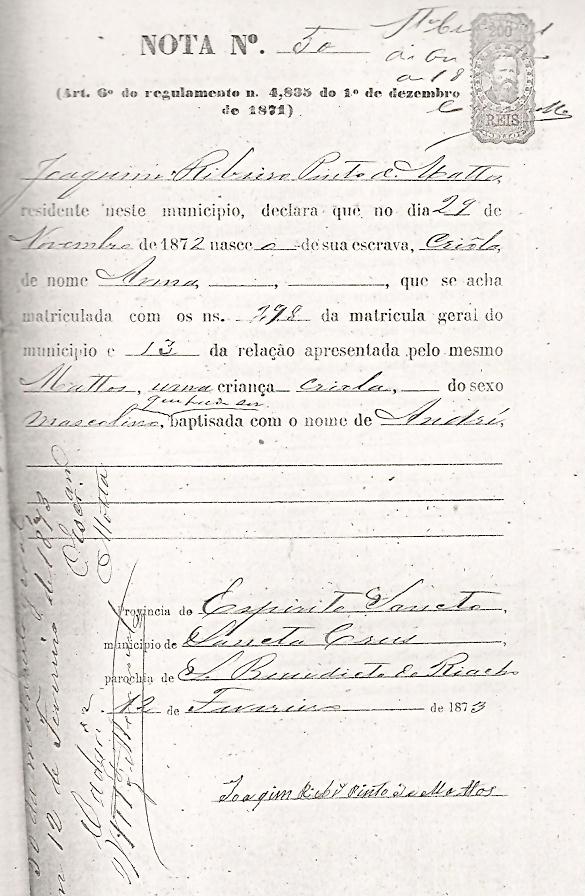 NOTA Nº. 50
200
REIS
(Art. 6º do regulamento n. 4,835 do 1º de dezembro
de 1871)
Joaquim Ribeiro Pinto de Mattos,
residente neste municipio, declara que no dia 29 de
Novembro de 1872 nasceo de sua escrava, Criola
de nome Anna, ——, ——, que se acha
matriculada com os ns. 298 da matricula geral do
municipio e 13 da relação apresentada pelo mesmo
Mattos, uma criança criola, —— do sexo
que hade ser
masculino, baptisada com o nome de André,
Provincia do Espirito Sancto,
municipio de Sancta Crus,
parochia de S. Benedicto do Riacho
12 de Fevereiro de 1873
Joaqim Ribrº Pinto de Mattos
12 de Fevereiro de 1873